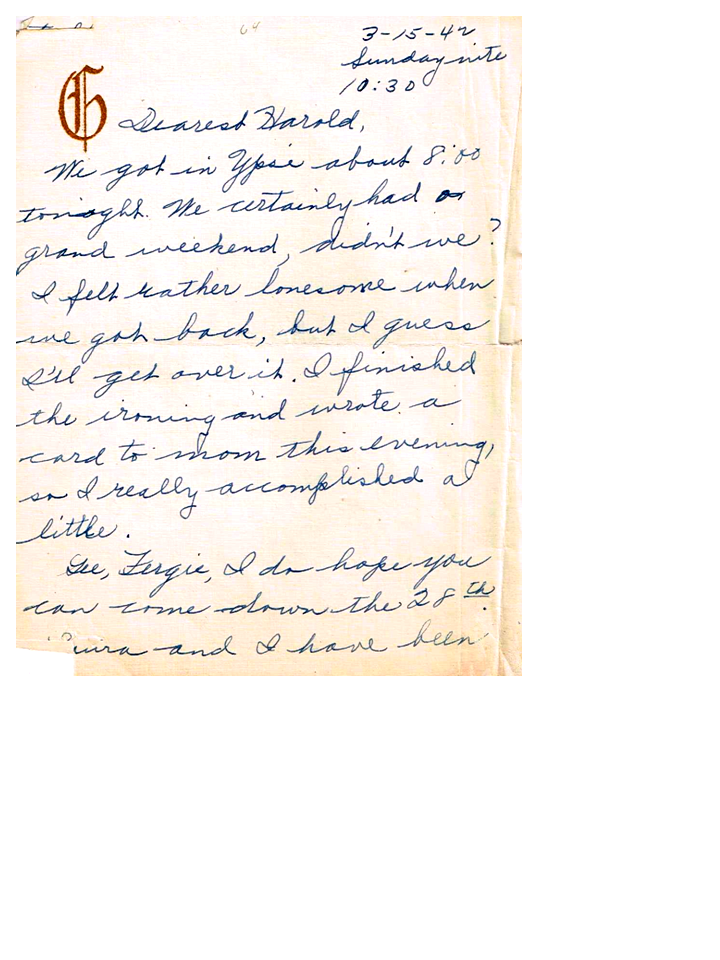 64
3-15-42
Sunday nite
10:30
G
Dearest Harold,
We got in Ypsi about 8:00
tonight. We certainly had a
grand weekend, didn't we?
I felt rather lonesome when
we got back, but I guess
I'll get over it. I finished
the ironing and wrote a
card to mom this evening,
so I really accomplished a
little.
Gee, Fergie, I do hope you
can come down the 28th.
and I have been